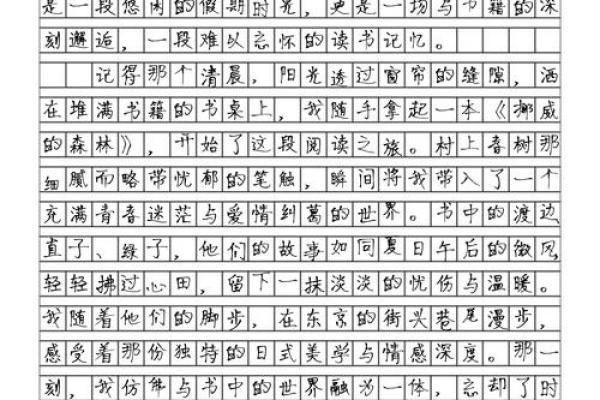 是一段悠闲的假期时光，更是一场与书籍的深
刻邂逅，一段难以忘怀的读书记忆。
记得那个清晨，阳光透过窗帘的缝隙，洒
在堆满书籍的书桌上，我随手拿起一本《挪威
的森林》，开始了这段阅读之旅。村上春树那
细腻而略带忧郁的笔触，瞬间将我带入了一个
充满青春迷茫与爱情纠葛的世界。书中的渡边
直子、绿子，他们的故事如同夏日午后的微风
轻轻拂过心田，留下一抹淡淡的忧伤与温暖。
我随着他们的脚步，在东京的街头巷尾漫步，
感受着那份独特的日式美学与情感深度。那一
刻，我仿佛与书中的世界融为一体，忘却了时